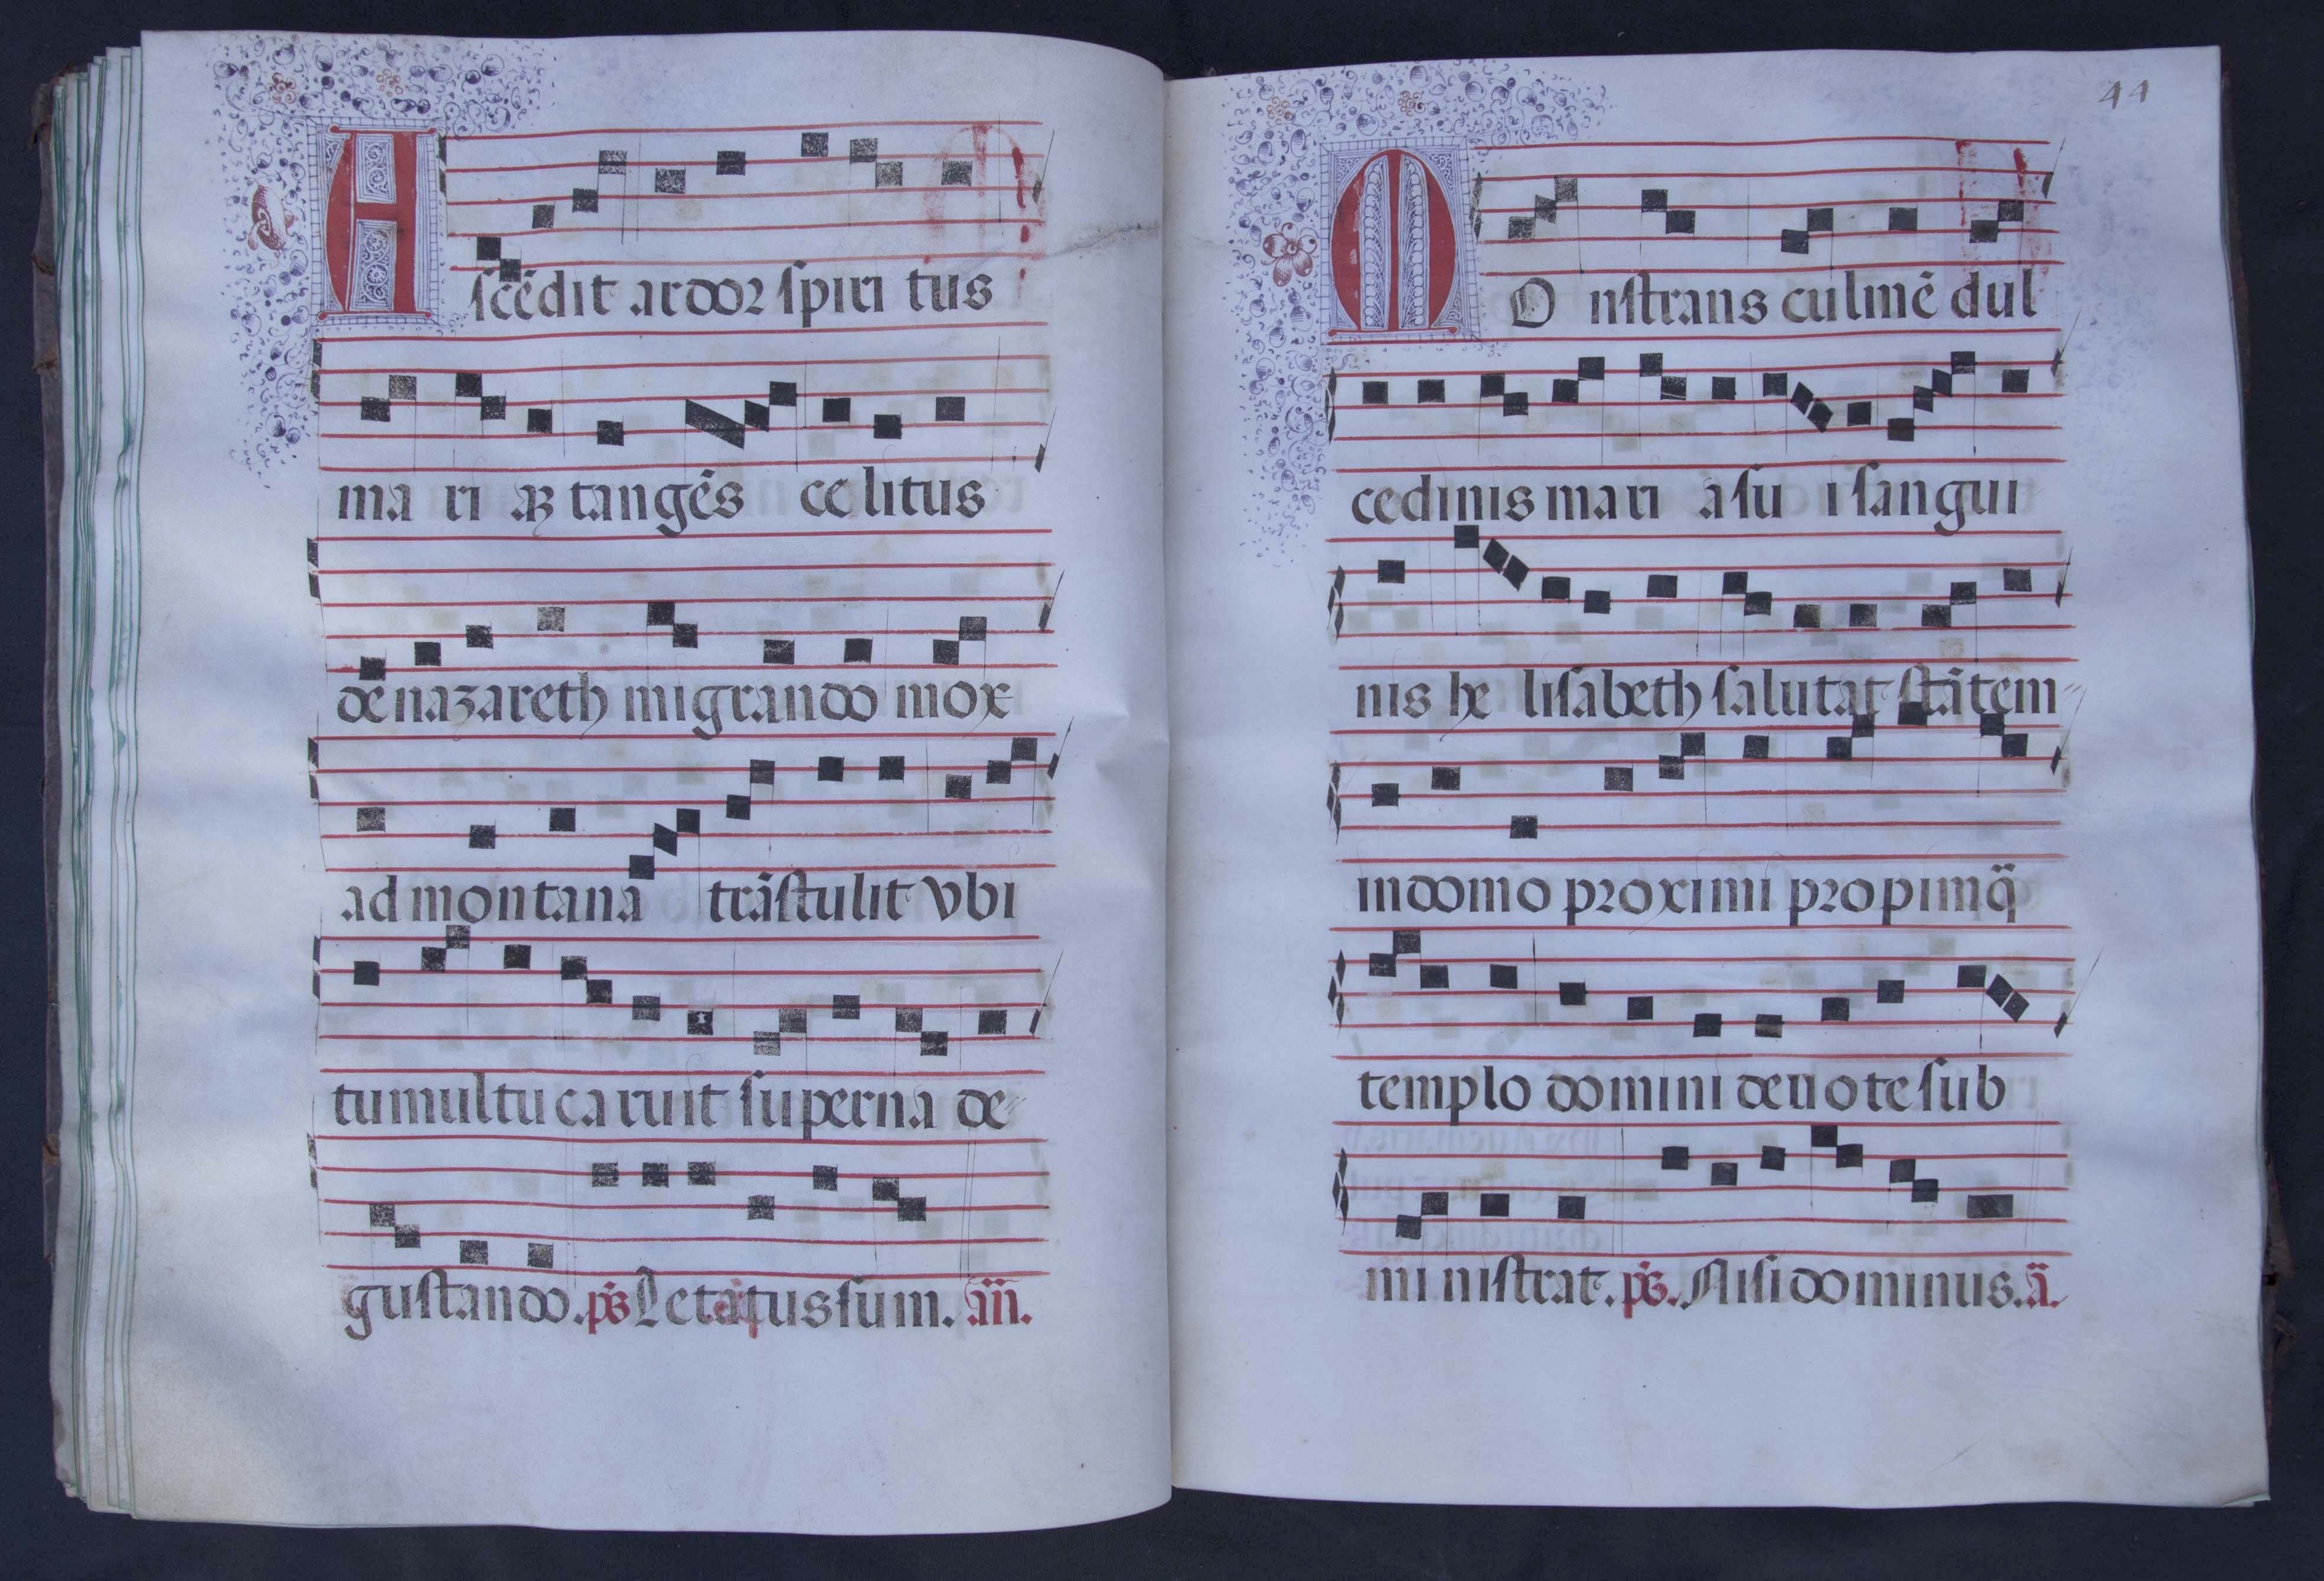 Ascēdit ardor spiri tus
ma ri ꝶ tangēs celitus
de nazareth migrando mox
ad montana trāstulit vbi
tumultu caruit superna de
gustando. p̄s Letatus sum. añ.
44
MO nstrans culmē dul
cedinis mari a su i sangui
nis he lisabeth salutat stātem
in domo proximi propimq̄
templo domini deuote sub
mi nistrat. p̄s. Nisi dominus. ā.